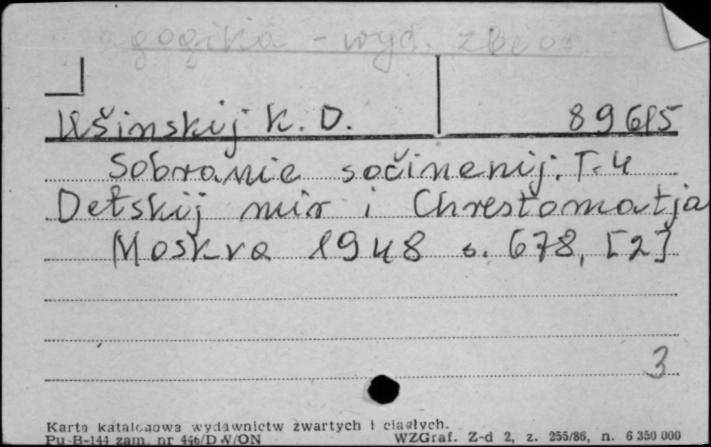 - wyd. zbior
Ušinskij K. D. 89615
Sobranie sočinenij. T. 4
Detskij mir i Chrestomatja
Moskva 1948 s. 678, [2]
3
Karta katalogowa wydawnictw zwartych i ciągłych.
Pu-B-144 zam. nr 446/DW/ON WZGraf. Z-d 2, z. 255/86, n. 6 350 000